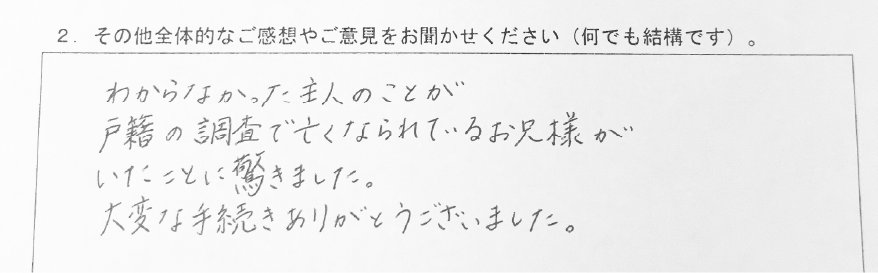 2．その他全体的なご感想やご意見をお聞かせください（何でも結構です）。
わからなかった主人のことが
戸籍の調査で亡くなられているお兄様が
いたことに驚きました。
大変な手続きありがとうございました。